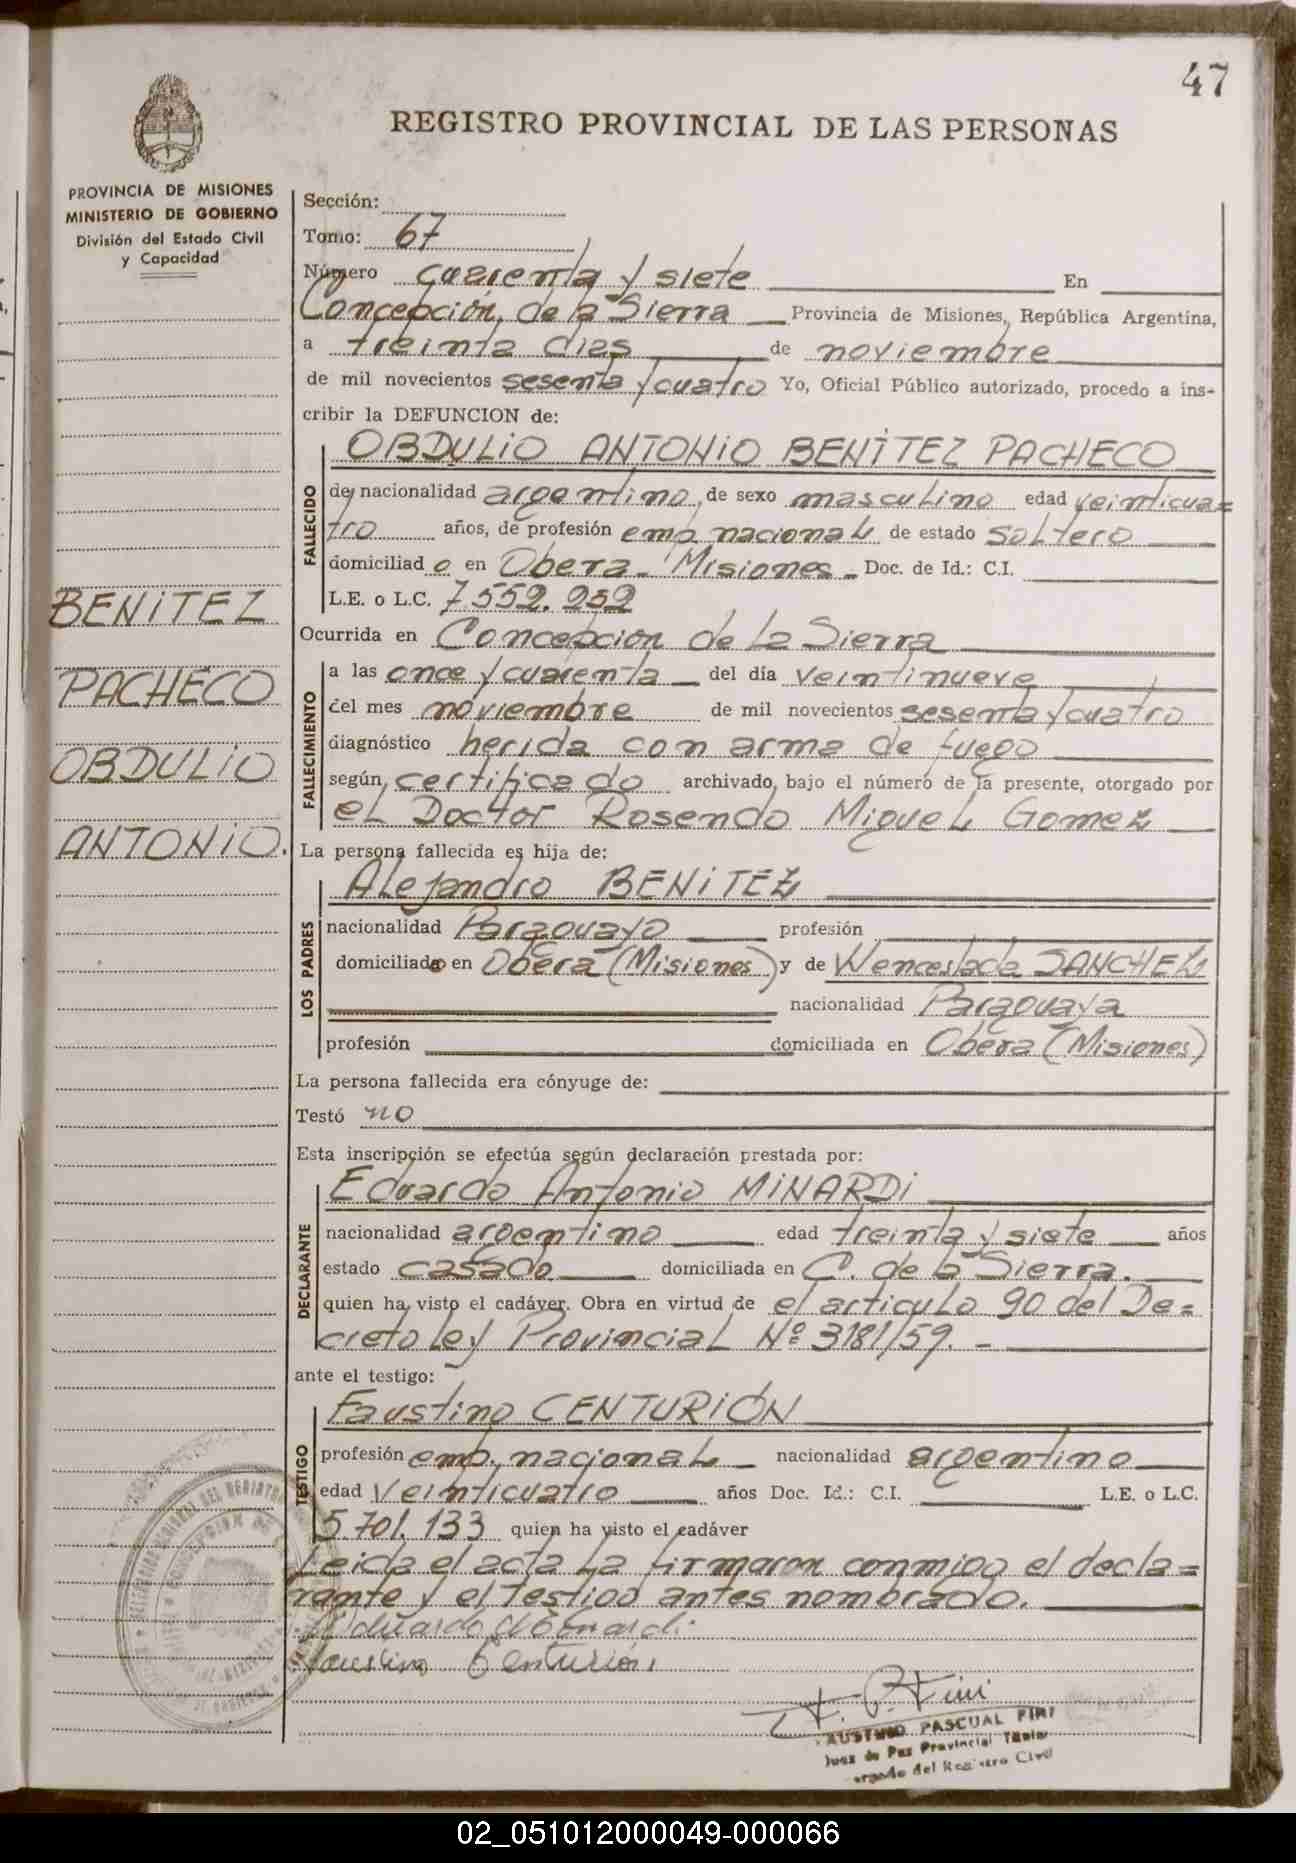 47
REGISTRO PROVINCIAL DE LAS PERSONAS
PROVINCIA DE MISIONES
MINISTERIO DE GOBIERNO
División del Estado Civil
y Capacidad
BENITEZ
PACHECO
OBDULIO
ANTONIO.
Sección:
Tomo: 67
Número cuarenta y siete En
Concepción de la Sierra Provincia de Misiones, República Argentina,
a treinta dias de noviembre
de mil novecientos sesenta y cuatro Yo, Oficial Público autorizado, procedo a ins-
cribir la DEFUNCION de:
FALLECIDO
OBDULIO ANTONIO BENITEZ PACHECO
de nacionalidad argentino, de sexo masculino edad veinticua=
tro años, de profesión emp. nacional de estado soltero
domiciliado en Obera - Misiones - Doc. de Id.: C.I.
L.E. o L.C. 7.552.252
Ocurrida en Concepcion de la Sierra
FALLECIMIENTO
a las once y cuarenta del día veintinueve
del mes noviembre de mil novecientos sesenta y cuatro
diagnóstico herida con arma de fuego
según certificado archivado, bajo el número de la presente, otorgado por
el Doctor Rosendo Miguel Gomez
La persona fallecida es hija de:
LOS PADRES
Alejandro BENITEZ
nacionalidad Paraguayo profesión
domiciliado en Obera (Misiones) y de Wenceslada SANCHEZ
nacionalidad Paraguaya
profesión domiciliada en Obera (Misiones)
La persona fallecida era cónyuge de:
Testó no
Esta inscripción se efectúa según declaración prestada por:
DECLARANTE
Eduardo Antonio MINARDI
nacionalidad argentino edad treinta y siete años
estado casado domiciliada en C. de la Sierra.
quien ha visto el cadáver. Obra en virtud de el articulo 90 del De=
creto ley Provincial Nº 3181/59. -
ante el testigo:
TESTIGO
Faustino CENTURIÓN
profesión emp. nacional nacionalidad argentino
edad Veinticuatro años Doc. Id.: C.I. L.E. o L.C.
5.701.133 quien ha visto el cadáver
Leida el acta la firmaron conmigo el decla=
rante y el testigo antes nombrado.
Faustino Centurión
F. P. Fini
PASCUAL FINI
Juez de Paz Provincial Titular
del Registro Civil
02_051012000049-000066